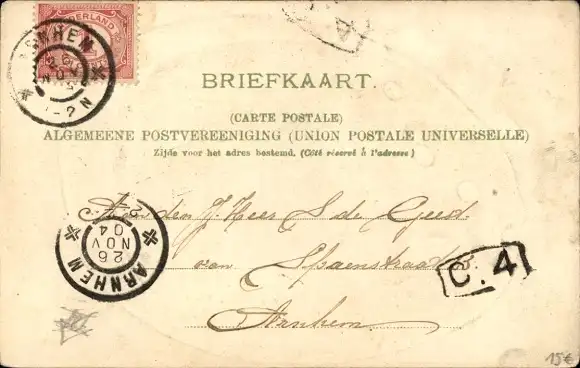 NEDERLAND
ARNHEM
NOV
1-2 N
BRIEFKAART.
(CARTE POSTALE)
ALGEMEENE POSTVEREENIGING (UNION POSTALE UNIVERSELLE)
Zijde voor het adres bestemd. (Côté réservé à l'adresse)
Aan den J. Heer S de Geest
van Spaenstraat 3
Arnhem.
26
NOV
04
ARNHEM
C. 4
15€